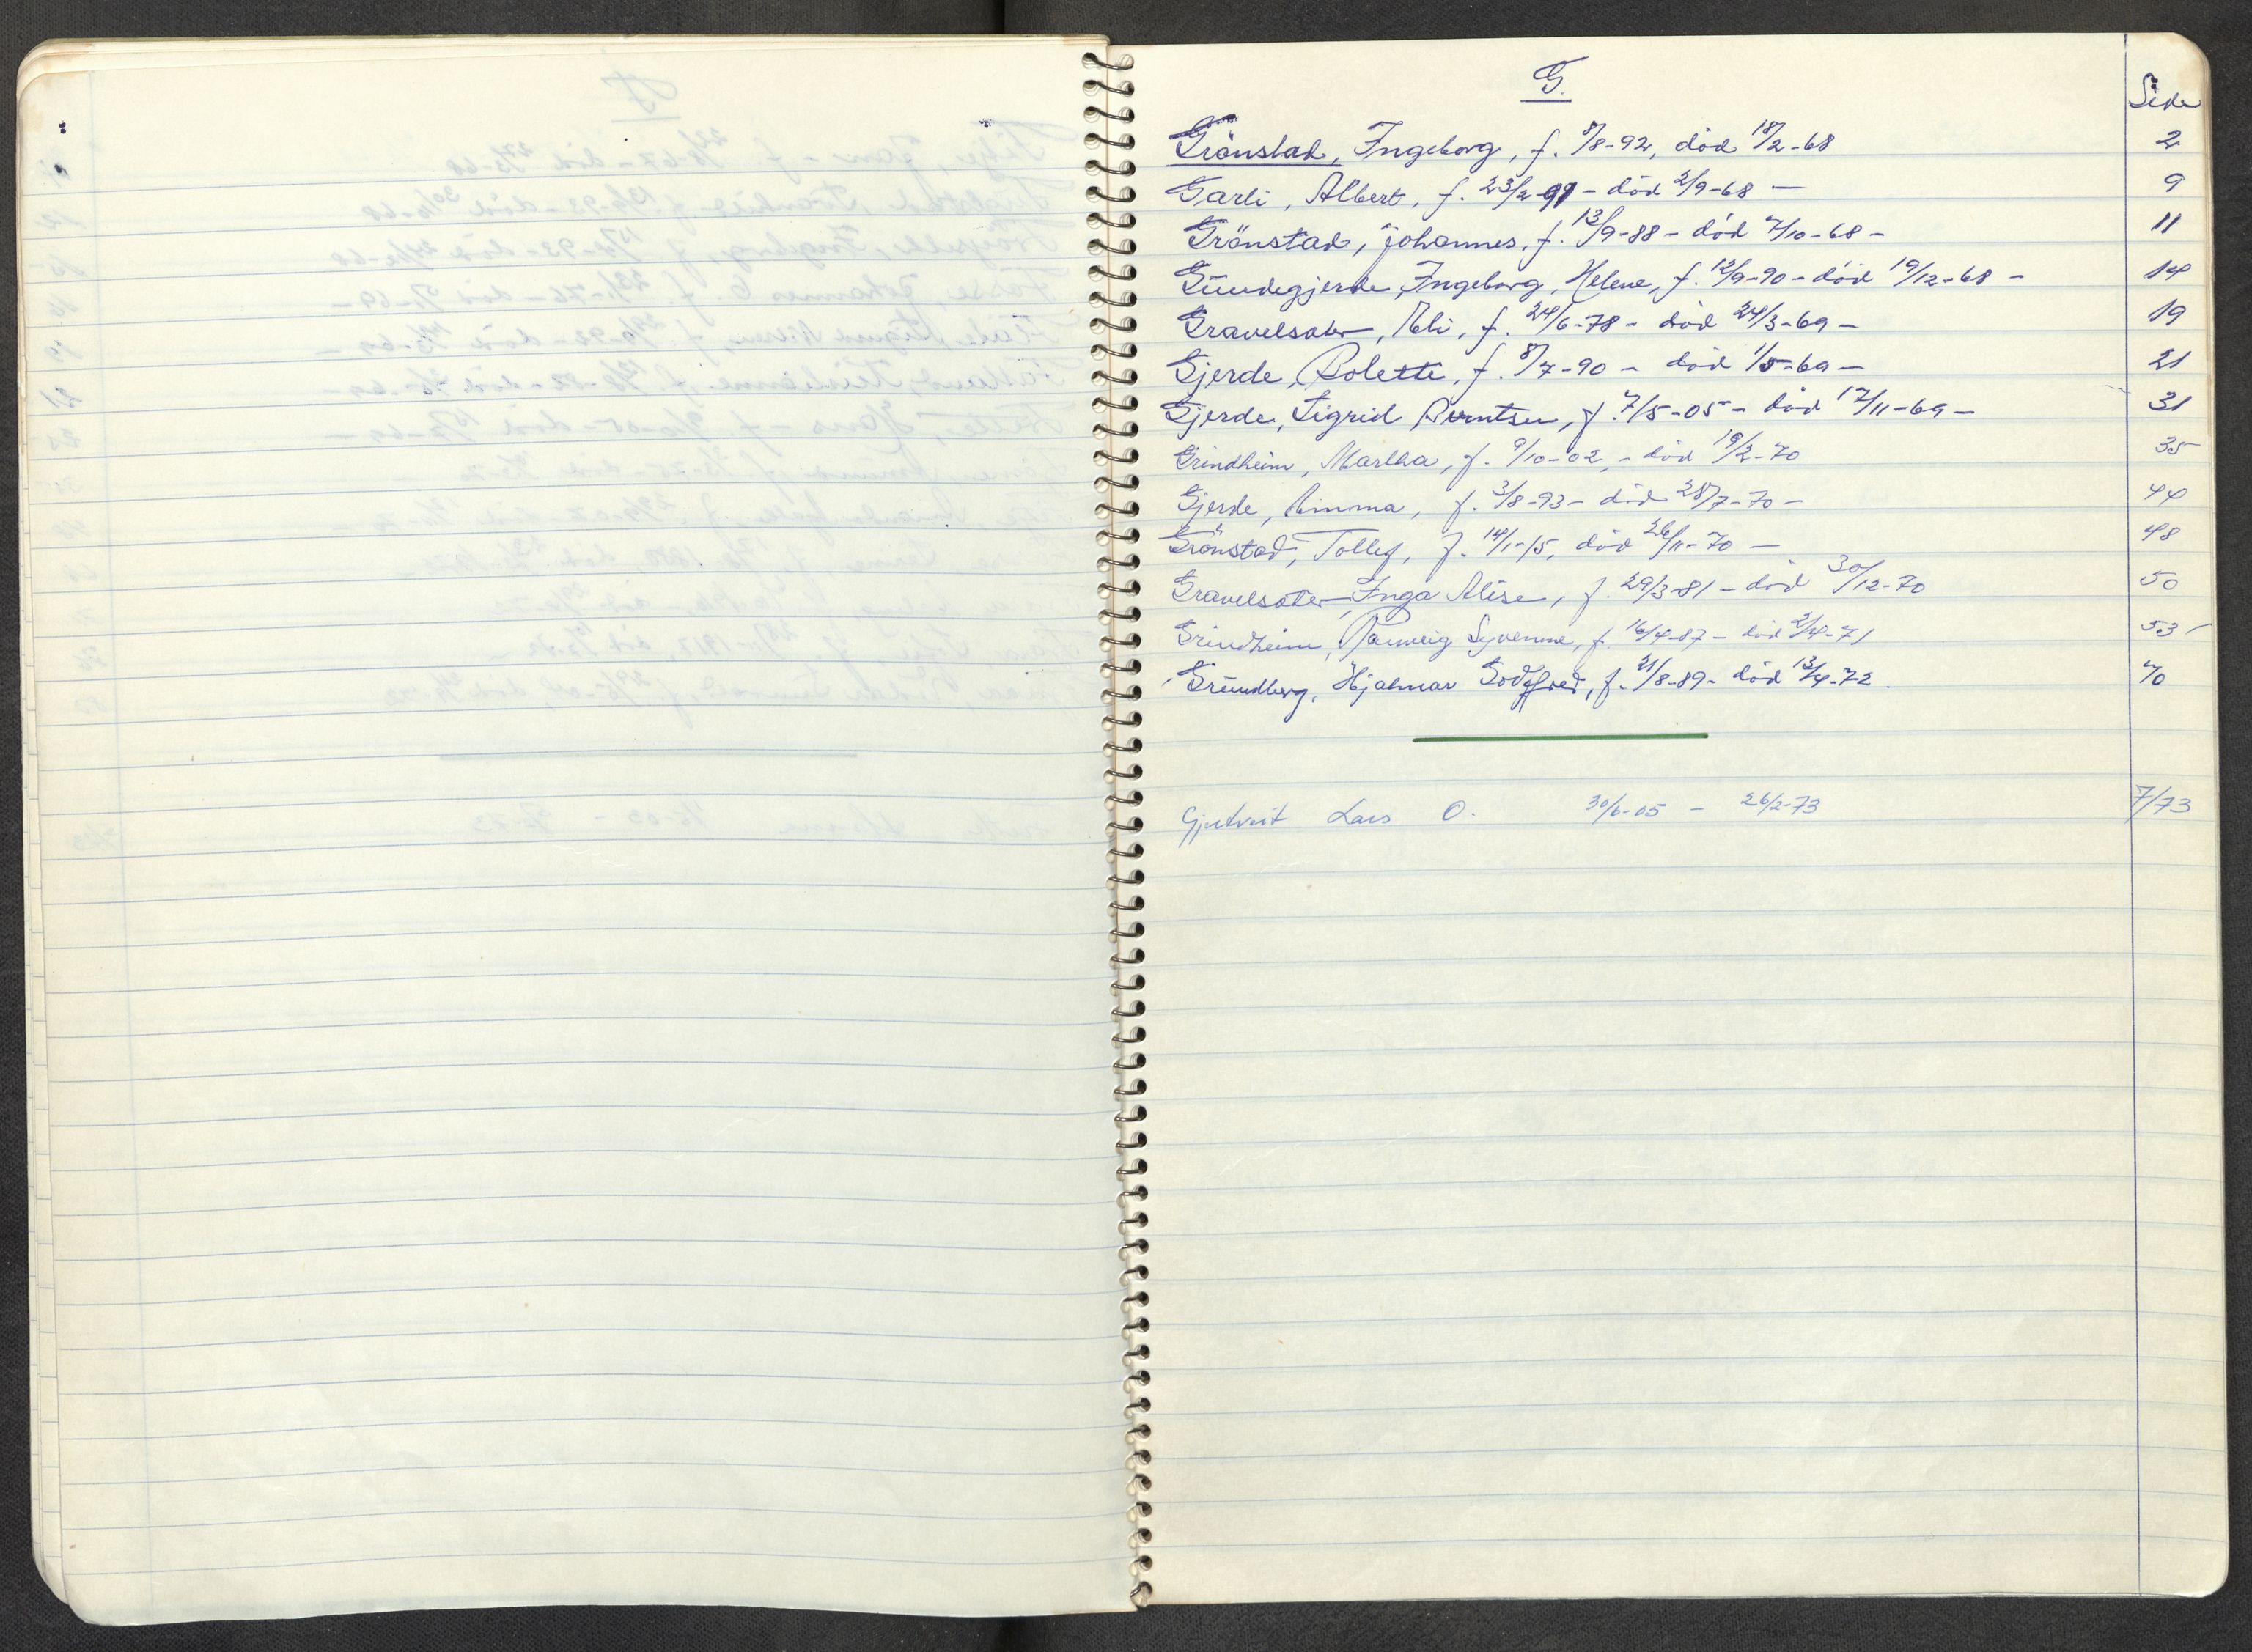 G.
Side
Grönstad, Ingeborg, f. 8/8-92, död 18/2-68 2
Garli, Albert, f. 23/2-91 - död 2/9-68 — 9
Grönstad, Johannes, f. 13/9-88 - död 7/10-68 - 11
Ingeborg, Helene, f. 12/9-90 - död 19/12-68 - 14
Gravelsæter, f. 24/6-78 - död 24/3-69 - 19
Gjerde, Bolette, f. 8/7-90 - död 1/5-69 - 21
Gjerde, Sigrid Berntsen, f. 7/5-05 - död 17/11-69 - 31
Grindheim, Martha, f. 9/10-02, - död 19/2-70 35
Gjerde, Emma, f. 3/8-93 - död 28/7-70 - 44
Grönstad, Tollef, f. 14/1-15, död 26/11-70 — 48
Gravelsæter, Inga Alise, f. 29/3-81 - död 30/12-70 50
Grindheim, f. 16/4-87 - död 2/4-71 53
Gründberg, Hjalmar Godtfred, f. 21/8-89 - död 13/4-72 70
Lars O. 30/6-05 - 26/2-73 7/73